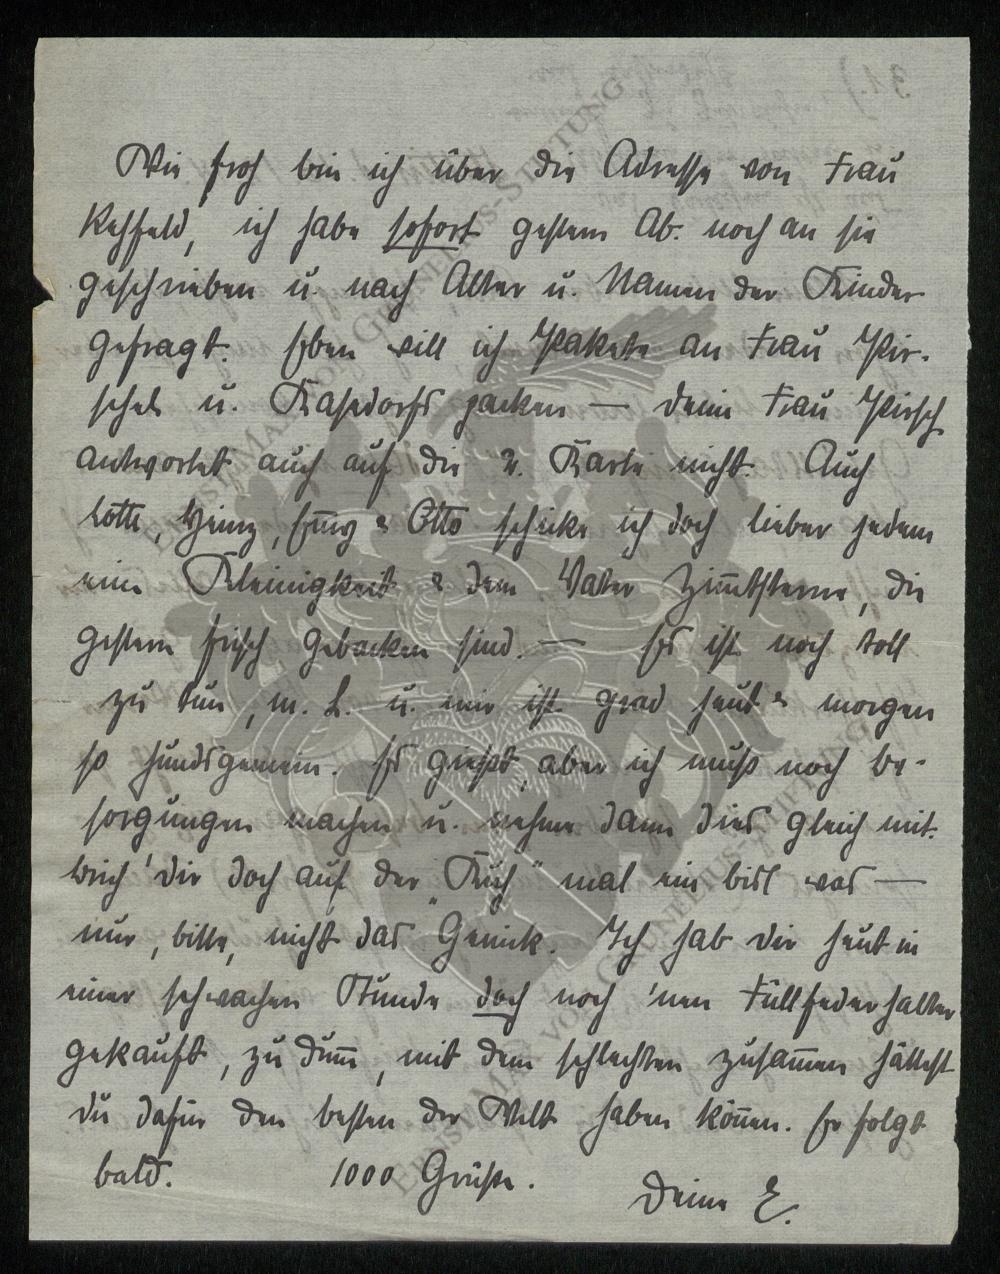 Wie froh bin ich über die Adresse von Frau
Rehfeld, ich habe sofort gestern Ab. noch an sie
geschrieben u. nach Alter u. Namen der Kinder
gefragt. Eben will ich Pakete an Frau Pir-
schel u. Kahsdorfs packen — denn Frau Pirsch
antwortet auch auf die 2. Karte nicht. Auch
Lotte, Heinz, & Otto schicke ich doch lieber jedem
eine Kleinigkeit & dem Vater Zimtsterne, die
gestern frisch gebacken sind. — Es ist noch toll
zu tun, m. L. u. mir ist grad heut & morgen
so hundsgemein. Es gießt, aber ich muß noch be-
sorgungen machen u. nehme dann dies gleich mit.
Brich' dir doch auf der "Kuh" mal ein bissl was —
nur, bitte, nicht das Genick. Ich hab dir heut in
einer schwachen Stunde doch noch 'nen Füllfederhalter
gekauft, zu dum̄, mit dem schlechten zusam̄en hättest
du dafür den besten der Welt haben kön̄en. Er folgt
bald. 1000 Grüße.
Deine E.
ERNST MAX VON GRUNELIUS-STIFTUNG
ERNST MAX VON GRUNELIUS-STIFTUNG